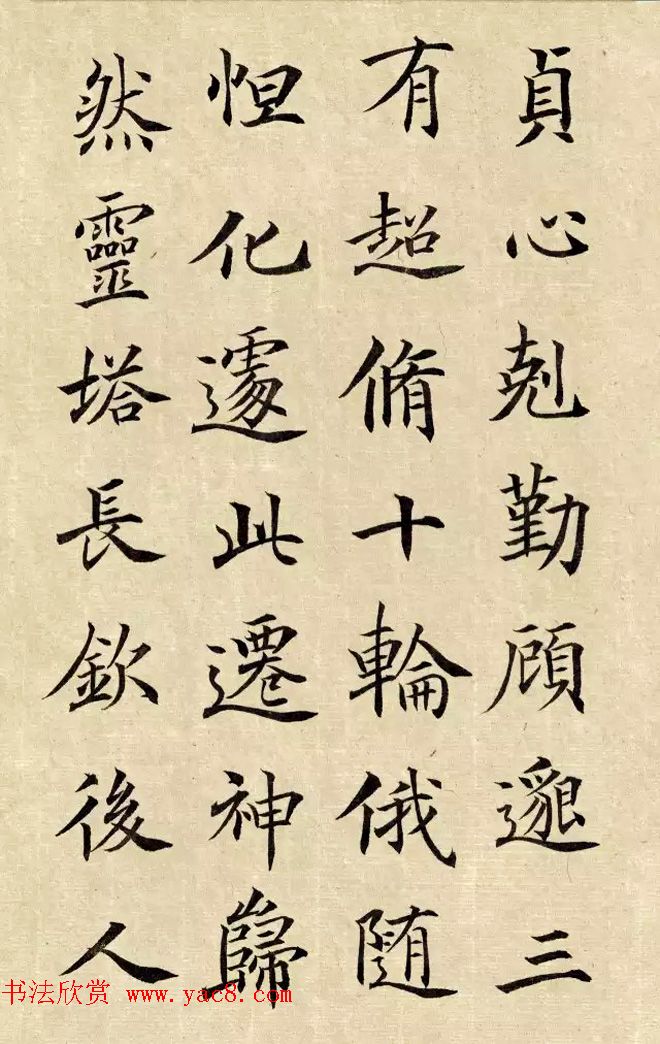 貞心剋勤顧邈三
有超脩十輪俄随
怛化遽此遷神歸
然靈塔長欽後人
书法欣赏 www.yac8.com